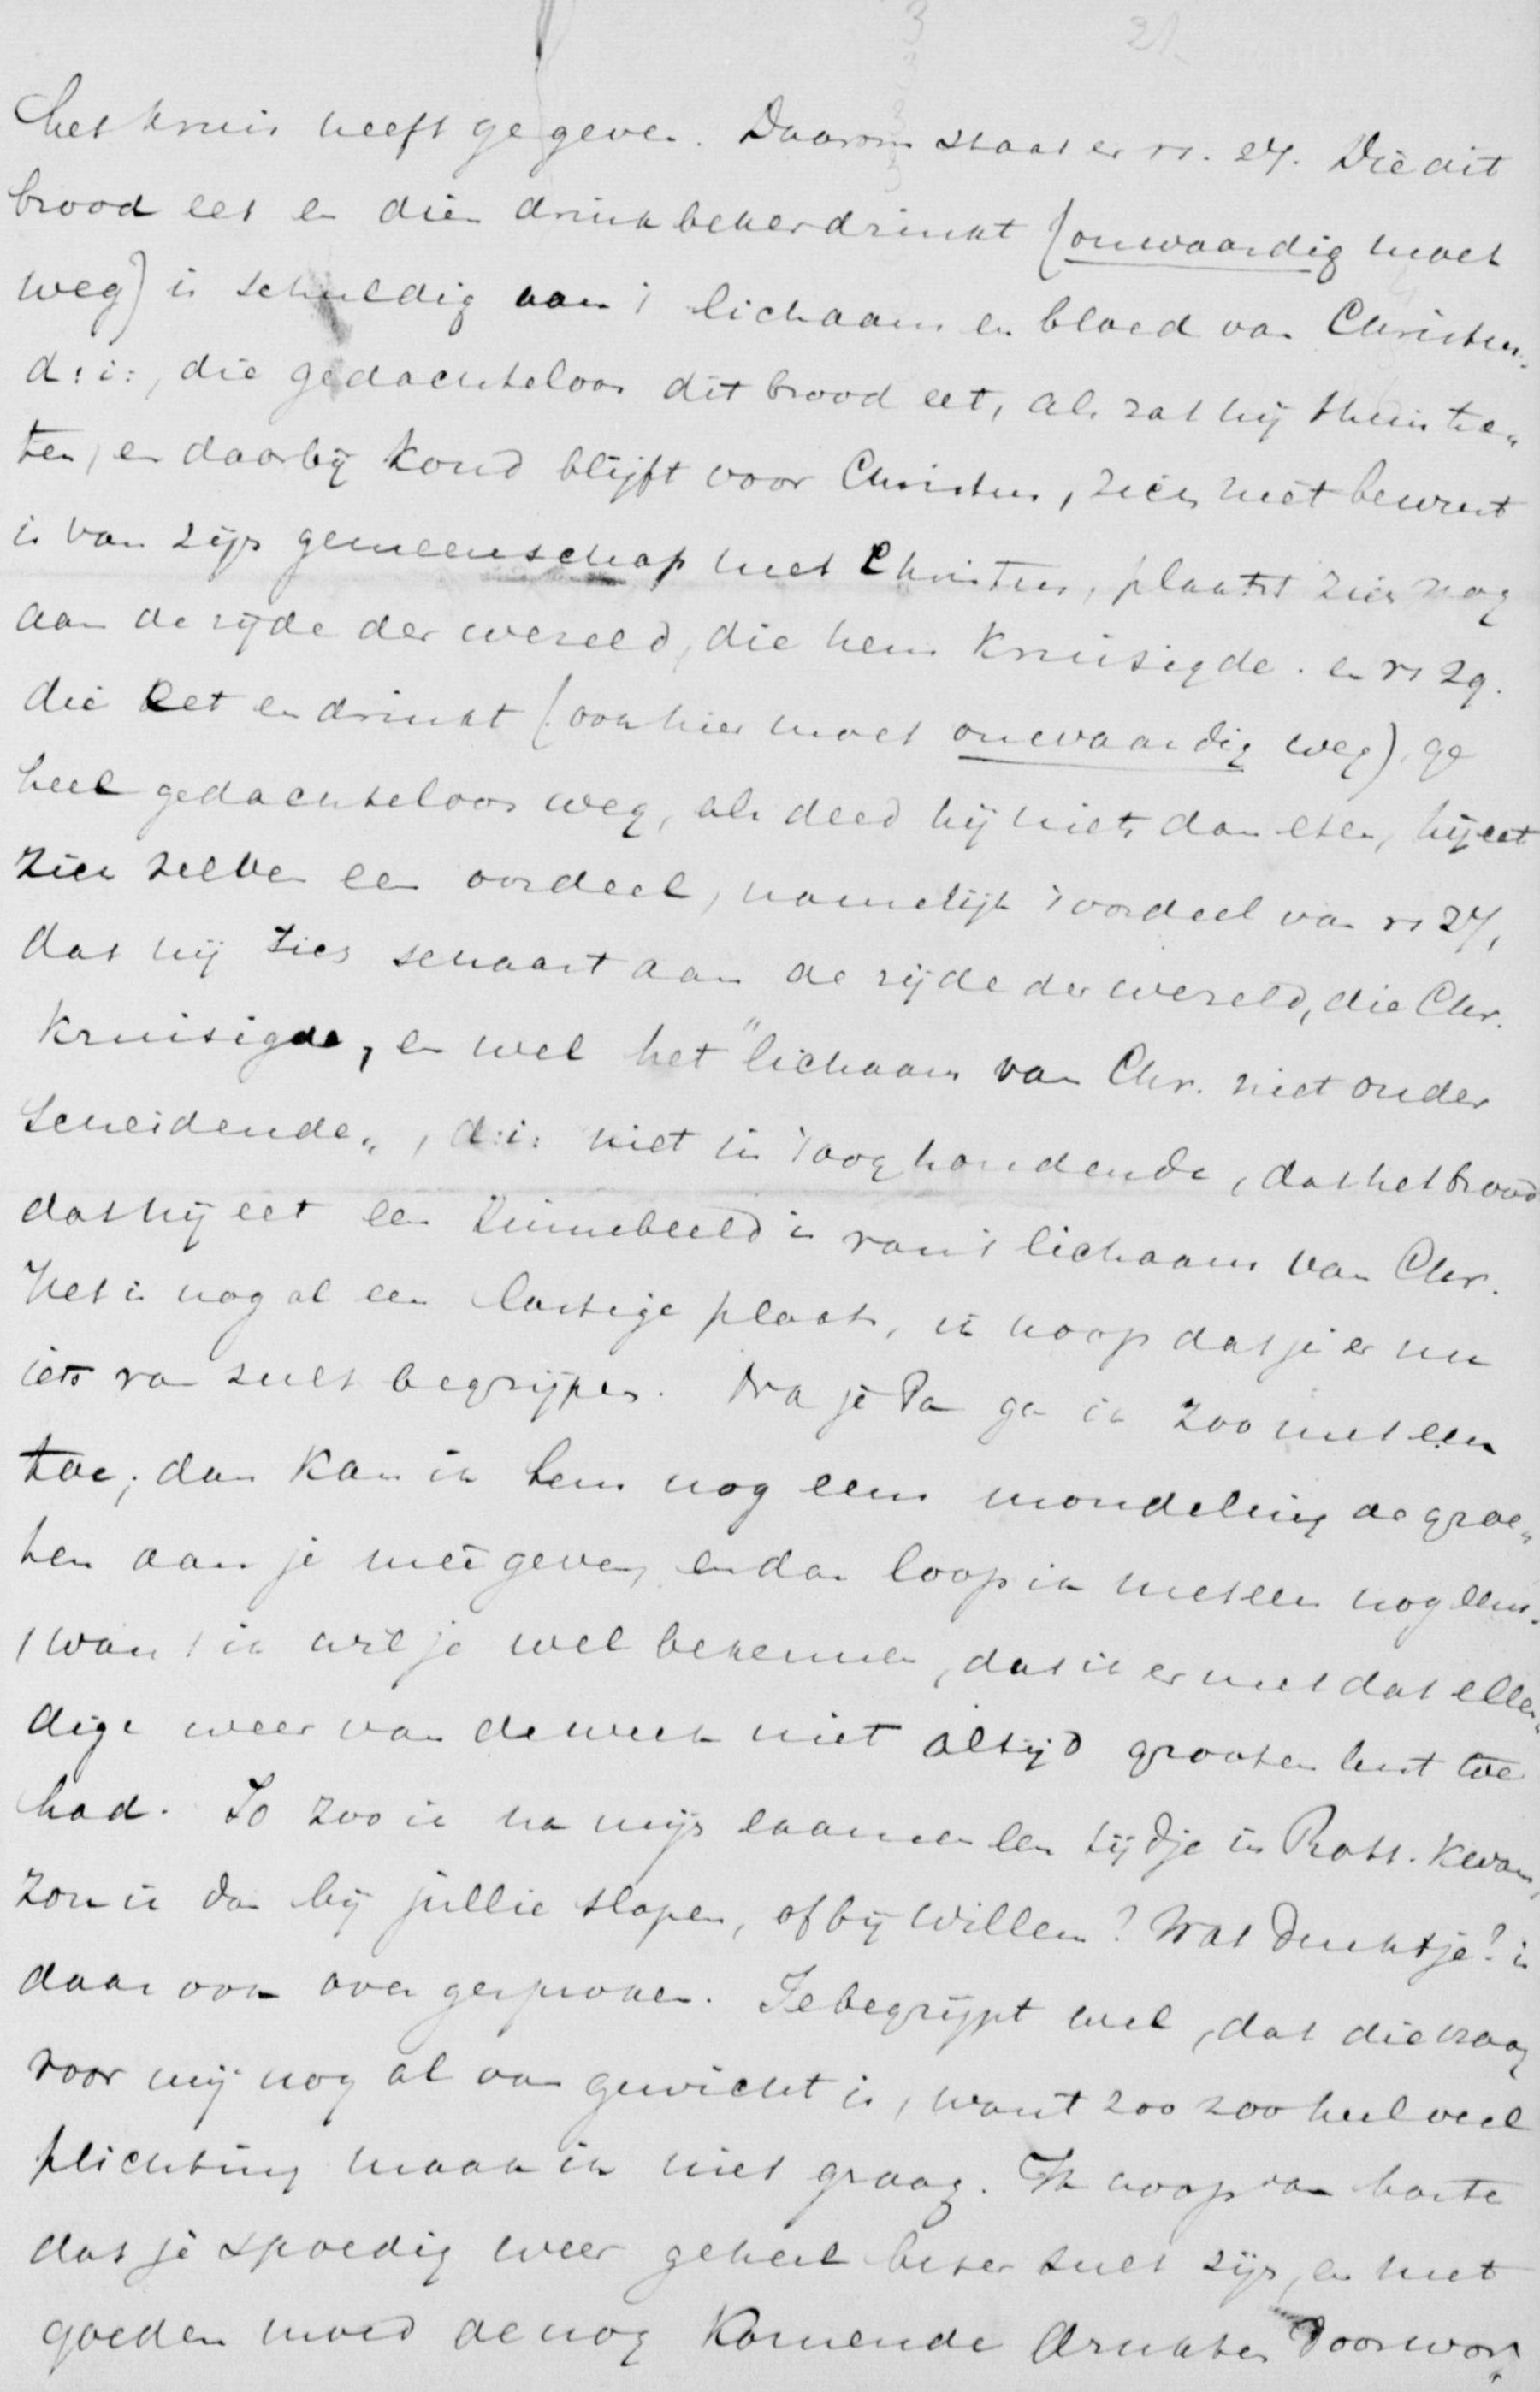 3 21.
het kruis heeft gegeven. Daarom staat er vs. 27. Die dit
brood eet en dien drinkbeker drinkt (onwaardig moet
weg) is schuldig aan 't lichaam en bloed van Christus.
d:i:, die gedachteloos dit brood eet, als zat hij thuis te e„
ten, en daarbij koud blijft voor Christus, zich niet bewust
is van zijn gemeenschap met Christus, plaatst zich nog
aan de zijde der wereld, die hem kruisigde. en vs 29.
die eet en drinkt (ook hier moet onwaardig weg), ge
heel gedachteloos weg, als deed hij niets dan eten, hij eet
zich zelven een oordeel, namelijk 't oordeel van vs 27,
dat hij zich schaart aan de zijde der wereld, die Chr.
kruisigde, en wel het "lichaam van Chr. niet onder
scheidende„, d:i: niet in 't oog houdende, dat het brood
dat hij eet een zinnebeeld is van 't lichaam van Chr.
Het is nog al een lastige plaats, ik hoop dat je er nu
iets van zult begrijpen. Na je Pa ga ik zoo met een
toe; dan kan ik hem nog eens mondeling de groe„
ten aan je meegeven, en dan loop ik meteen nog eens.
want ik wil je wel bekennen, dat ik er met dat ellen„
dige weer van de week niet altijd grooten lust toe
had. Zo zoo ik na mijn examen een tijdje in Rott. kwam,
zou ik dan bij jullie slapen, of bij Willem? Wat dunkt je? is
daar ook over gesproken. Je begrijpt wel, dat die vraag
voor mij nog al van gewicht is, want zoo zoo heel veel
plichting maak ik niet graag. Ik hoop van harte
dat je spoedig weer geheel beter zult zijn, en met
goeden moed de nog komende drukten doorwor„